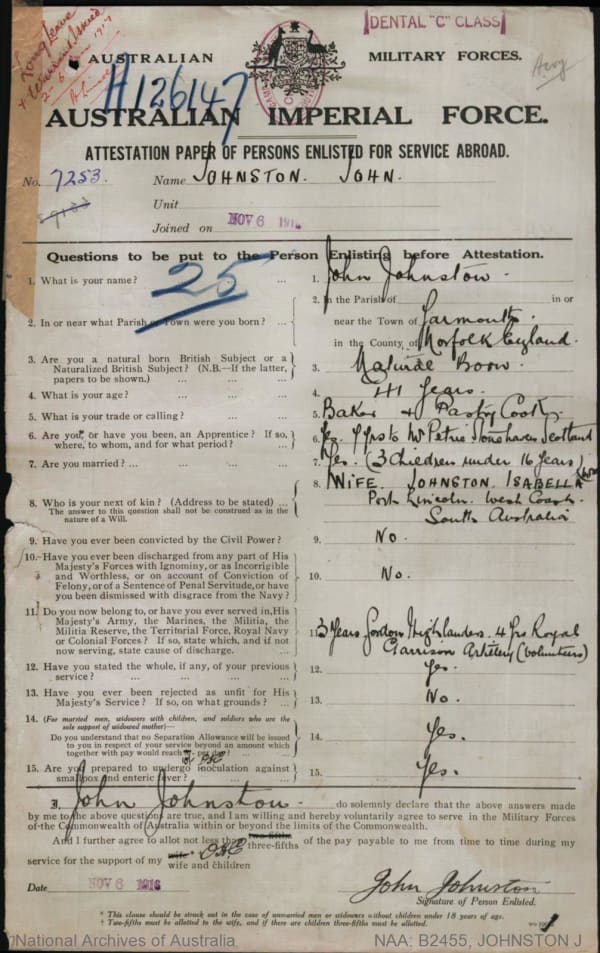 DENTAL "C" CLASS
Long leave
AUSTRALIAN MILITARY FORCES.
H126147
AUSTRALIAN IMPERIAL FORCE.
ATTESTATION PAPER OF PERSONS ENLISTED FOR SERVICE ABROAD.
No. 7253. Name JOHNSTON. JOHN.
Unit
Joined on NOV 6 191
Questions to be put to the Person Enlisting before Attestation.
25
1. What is your name? ... 1. John Johnston.
2. In or near what Parish or Town were you born? ... 2. In the Parish of in or
near the Town of Yarmouth.
in the County of Norfolk England.
3. Are you a natural born British Subject or a Naturalized British Subject? (N.B.—If the latter, papers to be shown.) ... 3. Natural Born.
4. What is your age? ... 4. 41 Years.
5. What is your trade or calling? ... 5. Baker & Pastry Cook.
6. Are you, or have you been, an Apprentice? If so, where, to whom, and for what period? ... 6. Yes. 7 yrs to Mr Petrie Stonehaven Scotland
7. Are you married? ... 7. Yes. (3 Children under 16 years)
8. Who is your next of kin? (Address to be stated) ... 8. WIFE. JOHNSTON. ISABELLA
The answer to this question shall not be construed as in the nature of a Will.
Port Lincoln. West Coast.
South Australia
9. Have you ever been convicted by the Civil Power? 9. No.
10. Have you ever been discharged from any part of His Majesty's Forces with Ignominy, or as Incorrigible and Worthless, or on account of Conviction of Felony, or of a Sentence of Penal Servitude, or have you been dismissed with disgrace from the Navy? 10. No.
11. Do you now belong to, or have you ever served in, His Majesty's Army, the Marines, the Militia, the Militia Reserve, the Territorial Force, Royal Navy or Colonial Forces? If so, state which, and if not now serving, state cause of discharge. 3 Years Gordon Highlanders. 4 yrs Royal Garrison Artillery (Volunteers)
12. Have you stated the whole, if any, of your previous service? ... 12. Yes.
13. Have you ever been rejected as unfit for His Majesty's Service? If so, on what grounds? ... 13. No.
14. (For married men, widowers with children, and soldiers who are the sole support of widowed mother)—
Do you understand that no Separation Allowance will be issued to you in respect of your service beyond an amount which together with pay would reach per day? 14. Yes.
15. Are you prepared to undergo inoculation against smallpox and enteric fever? ... 15. Yes.
I, John Johnston. do solemnly declare that the above answers made
by me to the above questions are true, and I am willing and hereby voluntarily agree to serve in the Military Forces
of the Commonwealth of Australia within or beyond the limits of the Commonwealth.
And I further agree to allot not less than two-fifths three-fifths of the pay payable to me from time to time during my
service for the support of my wife wife and children
Date NOV 6 1916 John Johnston
Signature of Person Enlisted.
* This clause should be struck out in the case of unmarried men or widowers without children under 18 years of age.
† Two-fifths must be allotted to the wife, and if there are children three-fifths must be allotted.
National Archives of Australia NAA: B2455, JOHNSTON J